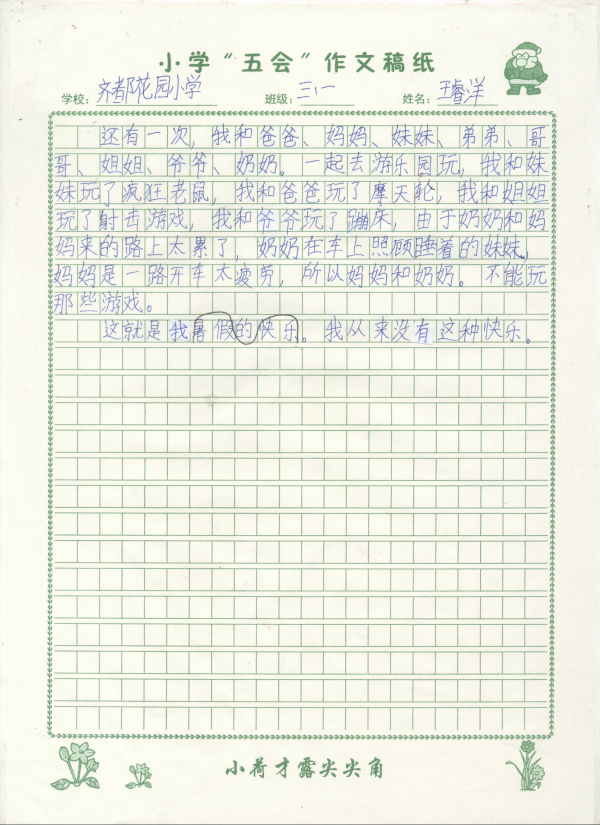 小学“五会”作文稿纸
学校：齐都花园小学 班级：三、一 姓名：王睿洋
还有一次，我和爸爸、妈妈、妹妹、弟弟、哥
哥、姐姐、爷爷、奶奶。一起去游乐园玩，我和妹
妹玩了疯狂老鼠，我和爸爸玩了摩天轮，我和姐姐
玩了射击游戏，我和爷爷玩了蹦床，由于奶奶和妈
妈来的路上太累了，奶奶在车上照顾睡着的妹妹，
妈妈是一路开车太疲劳，所以妈妈和奶奶。不能玩
那些游戏。
这就是我暑假的快乐。我从来没有这种快乐。
小荷才露尖尖角